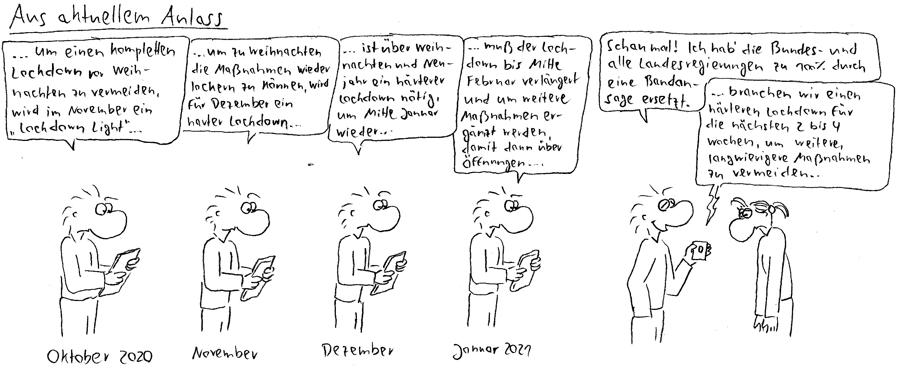 Aus aktuellem Anlass
... um einen kompletten
Lockdown vor Weih-
nachten zu vermeiden,
wird im November ein
"Lockdown Light"...
...um zu Weihnachten
die Maßnahmen wieder
lockern zu können, wird
für Dezember ein
harter Lockdown...
... ist über Weih-
nachten und Neu-
jahr ein härterer
Lockdown nötig,
um Mitte Januar
wieder...
... muß der Lock-
down bis Mitte
Februar verlängert
und um weitere
Maßnahmen er-
gänzt werden,
damit dann über
Öffnungen....
Schau mal! Ich hab' die Bundes- und
alle Landesregierungen zu 100% durch
eine Bandan-
sage ersetzt.
... brauchen wir einen
härteren Lockdown für
die nächsten 2 bis 4
Wochen, um weitere,
langwierigere Maßnahmen
zu vermeiden...
Oktober 2020
November
Dezember
Januar 2021